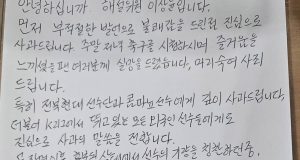 안녕하십니까. 해설위원 이상윤입니다.
먼저 부적절한 발언으로 불쾌감을 드린점 진심으로
사과드립니다. 주말 저녁 축구를 시청하시며 즐거움을
느끼셨을 팬 여러분께 실망을 드렸습니다, 머리숙여 사죄
드립니다.
특히 전북현대 선수단과 콤파뇨 선수에게 깊이 사과드립니다,
더불어 K리그에서 뛰고 있는 모든 외국인 선수들에게도
진심으로 사과의 말씀을 전합니다.
선수의 칭찬하려던중,